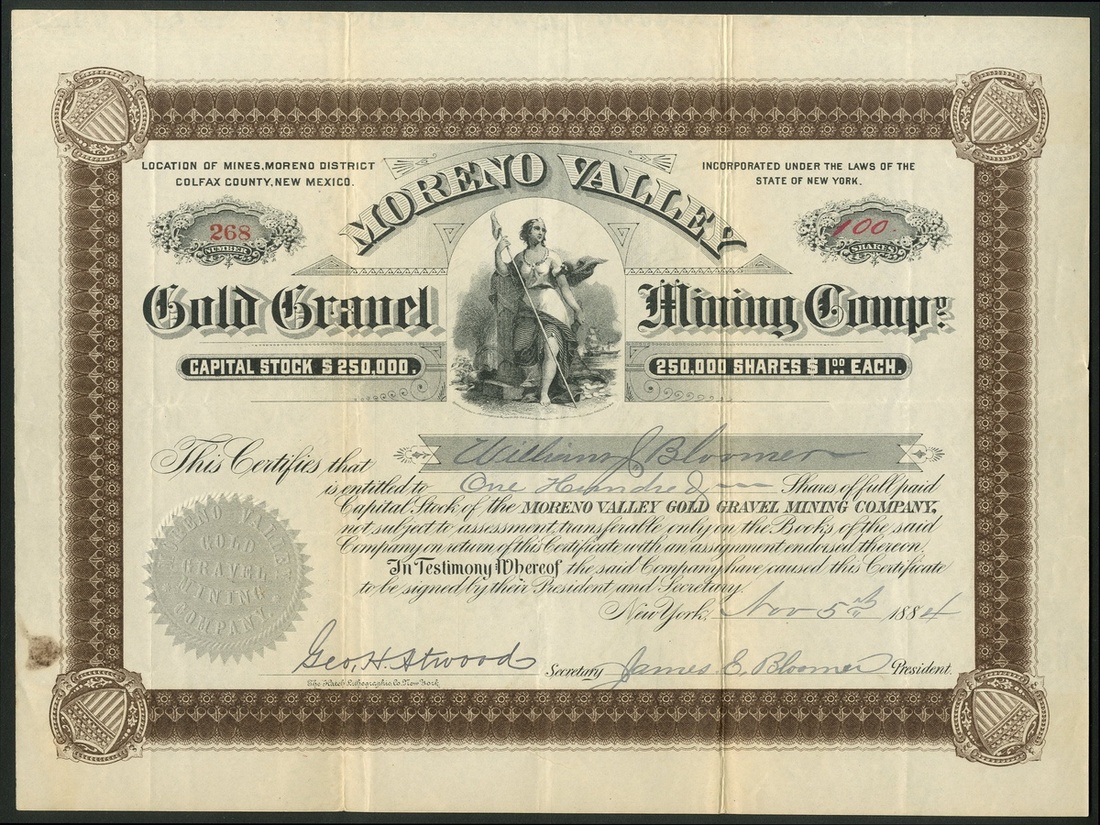 LOCATION OF MINES, MORENO DISTRICT
COLFAX COUNTY, NEW MEXICO.
INCORPORATED UNDER THE LAWS OF THE
STATE OF NEW YORK.
268
NUMBER
100.
SHARES
MORENO VALLEY
Gold Gravel Mining Compy.
CAPITAL STOCK $250,000.
250,000 SHARES $1.00 EACH.
This Certifies that William J Bloomer
is entitled to One Hundred Shares of full paid
Capital Stock of the MORENO VALLEY GOLD GRAVEL MINING COMPANY,
not subject to assessment, transferable only on the Books of the said
Company on return of this Certificate with an assignment endorsed thereon.
In Testimony Whereof the said Company have caused this Certificate
to be signed by their President and Secretary.
New York, Nov 5th 1884
MORENO VALLEY
GOLD
GRAVEL
MINING
COMPANY.
Geo. H. Atwood Secretary James E. Bloomer President.
The Hatch Lithographic Co. New York